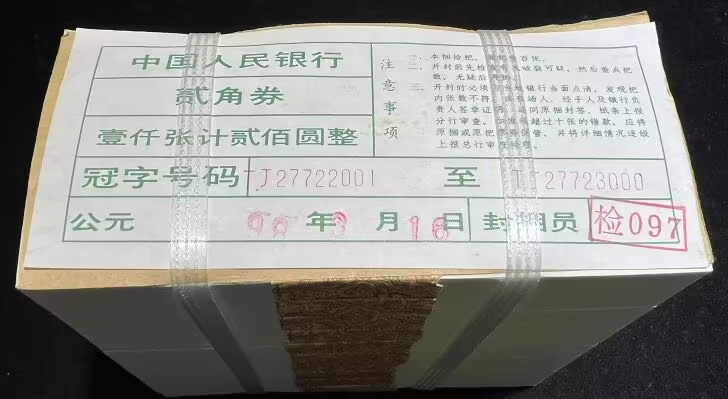 中国人民银行
贰角券
壹仟张计贰佰圆整
冠字号码 TJ27722001 至 TJ27723000
公元 年 月 16 日 封捆员 检097
注意事项
一、本捆拾把, 百张。
二、开封前先检查 破裂可疑, 然后查点把
数, 无疑后
三、开封时必须 银行当面点清, 发现把
内张数不符, 在场人、经手人及银行负
责人签章证 同原捆封签、纸条上报
分行审查。 超过十张的错款, 应将
原捆或原把 保管, 并将详细情况逐级
上报总行审